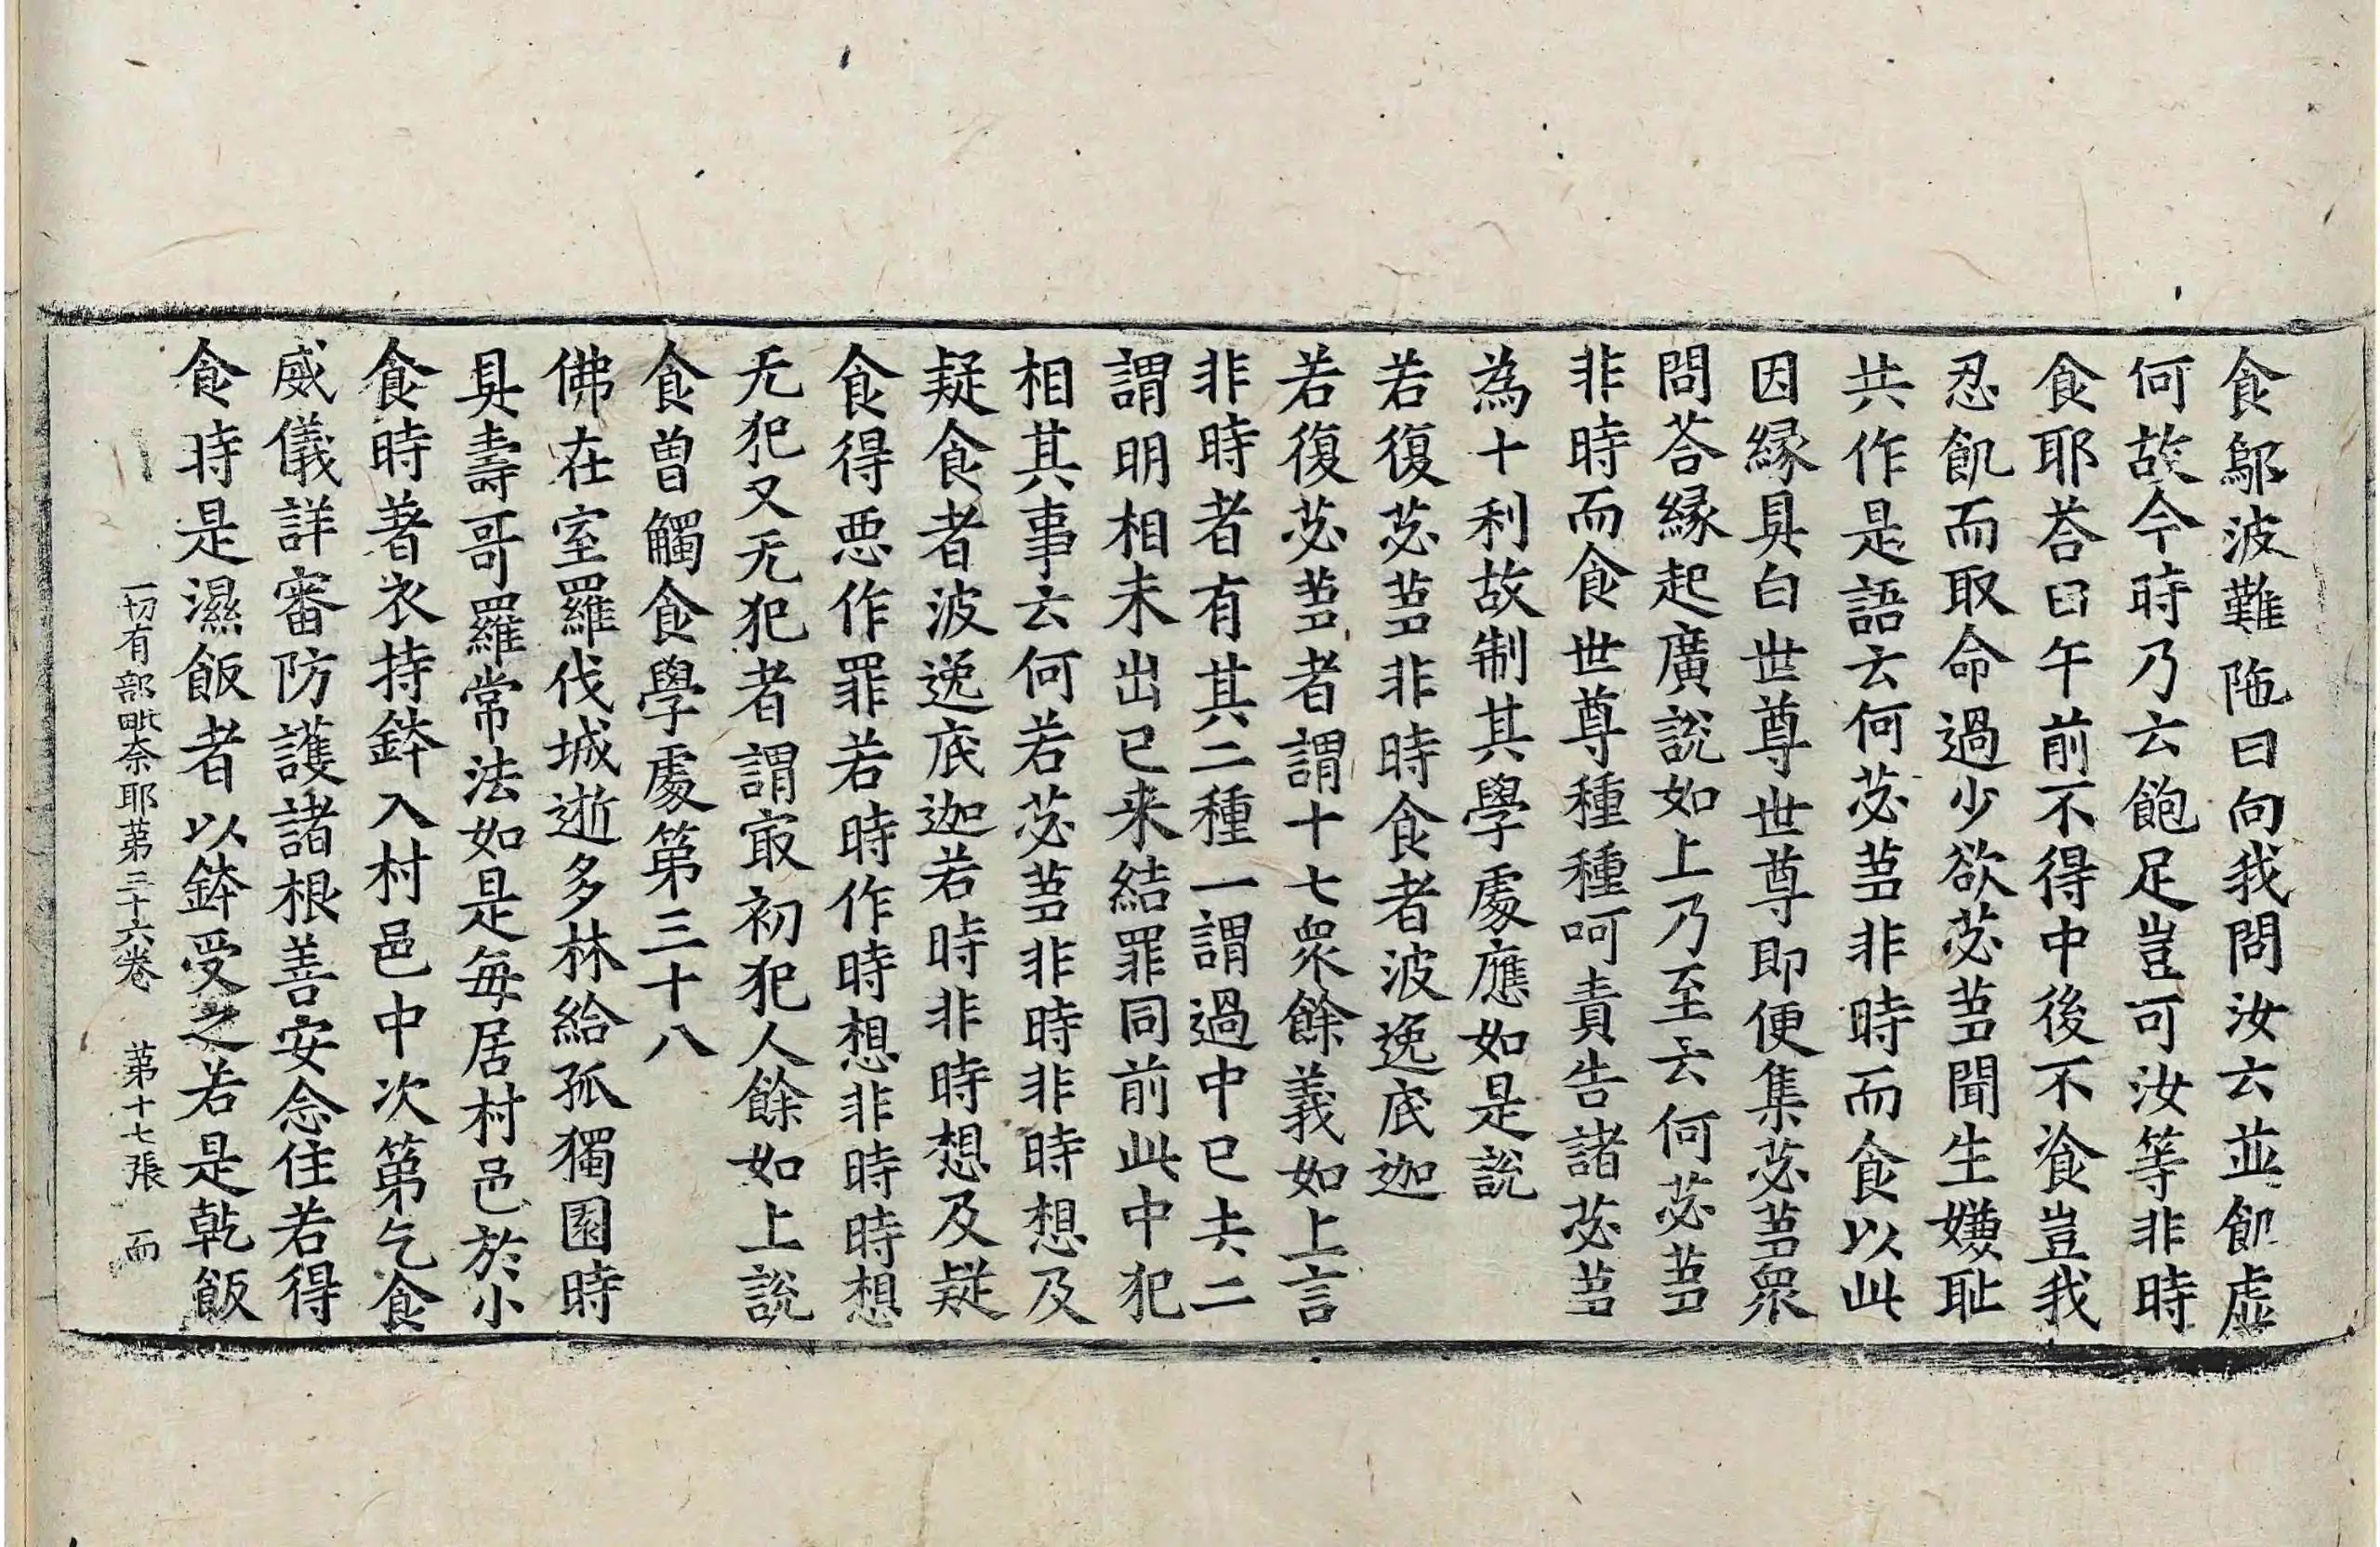 食鄔波難陁曰向我問汝云並飢虛
何故今時乃云飽足豈可汝等非時
食耶荅曰午前不得中後不飡豈我
忍飢而取命過少欲苾蒭聞生嫌耻
共作是語云何苾蒭非時而食以此
因縁具白世尊世尊即便集苾蒭衆
問荅縁起廣說如上乃至云何苾蒭
非時而食世尊種種呵責告諸苾蒭
為十利故制其學處應如是說
若復苾蒭非時食者波逸底迦
若復苾蒭者謂十七衆餘義如上言
非時者有其二種一謂過中已去二
謂明相未出已来結罪同前此中犯
相其事云何若苾蒭非時非時想及
疑食者波逸底迦若時非時想及疑
食得悪作罪若時作時想非時時想
无犯又无犯者謂㝡初犯人餘如上說
食曾觸食學處第三十八
佛在室羅伐城逝多林給孤獨園時
具壽哥羅常法如是每居村邑於小
食時著衣持鉢入村邑中次第乞食
威儀詳審防護諸根善安念住若得
食時是濕飯者以鉢受之若是乹飯
一切有部毗奈耶苐三十六卷 苐十七張 而